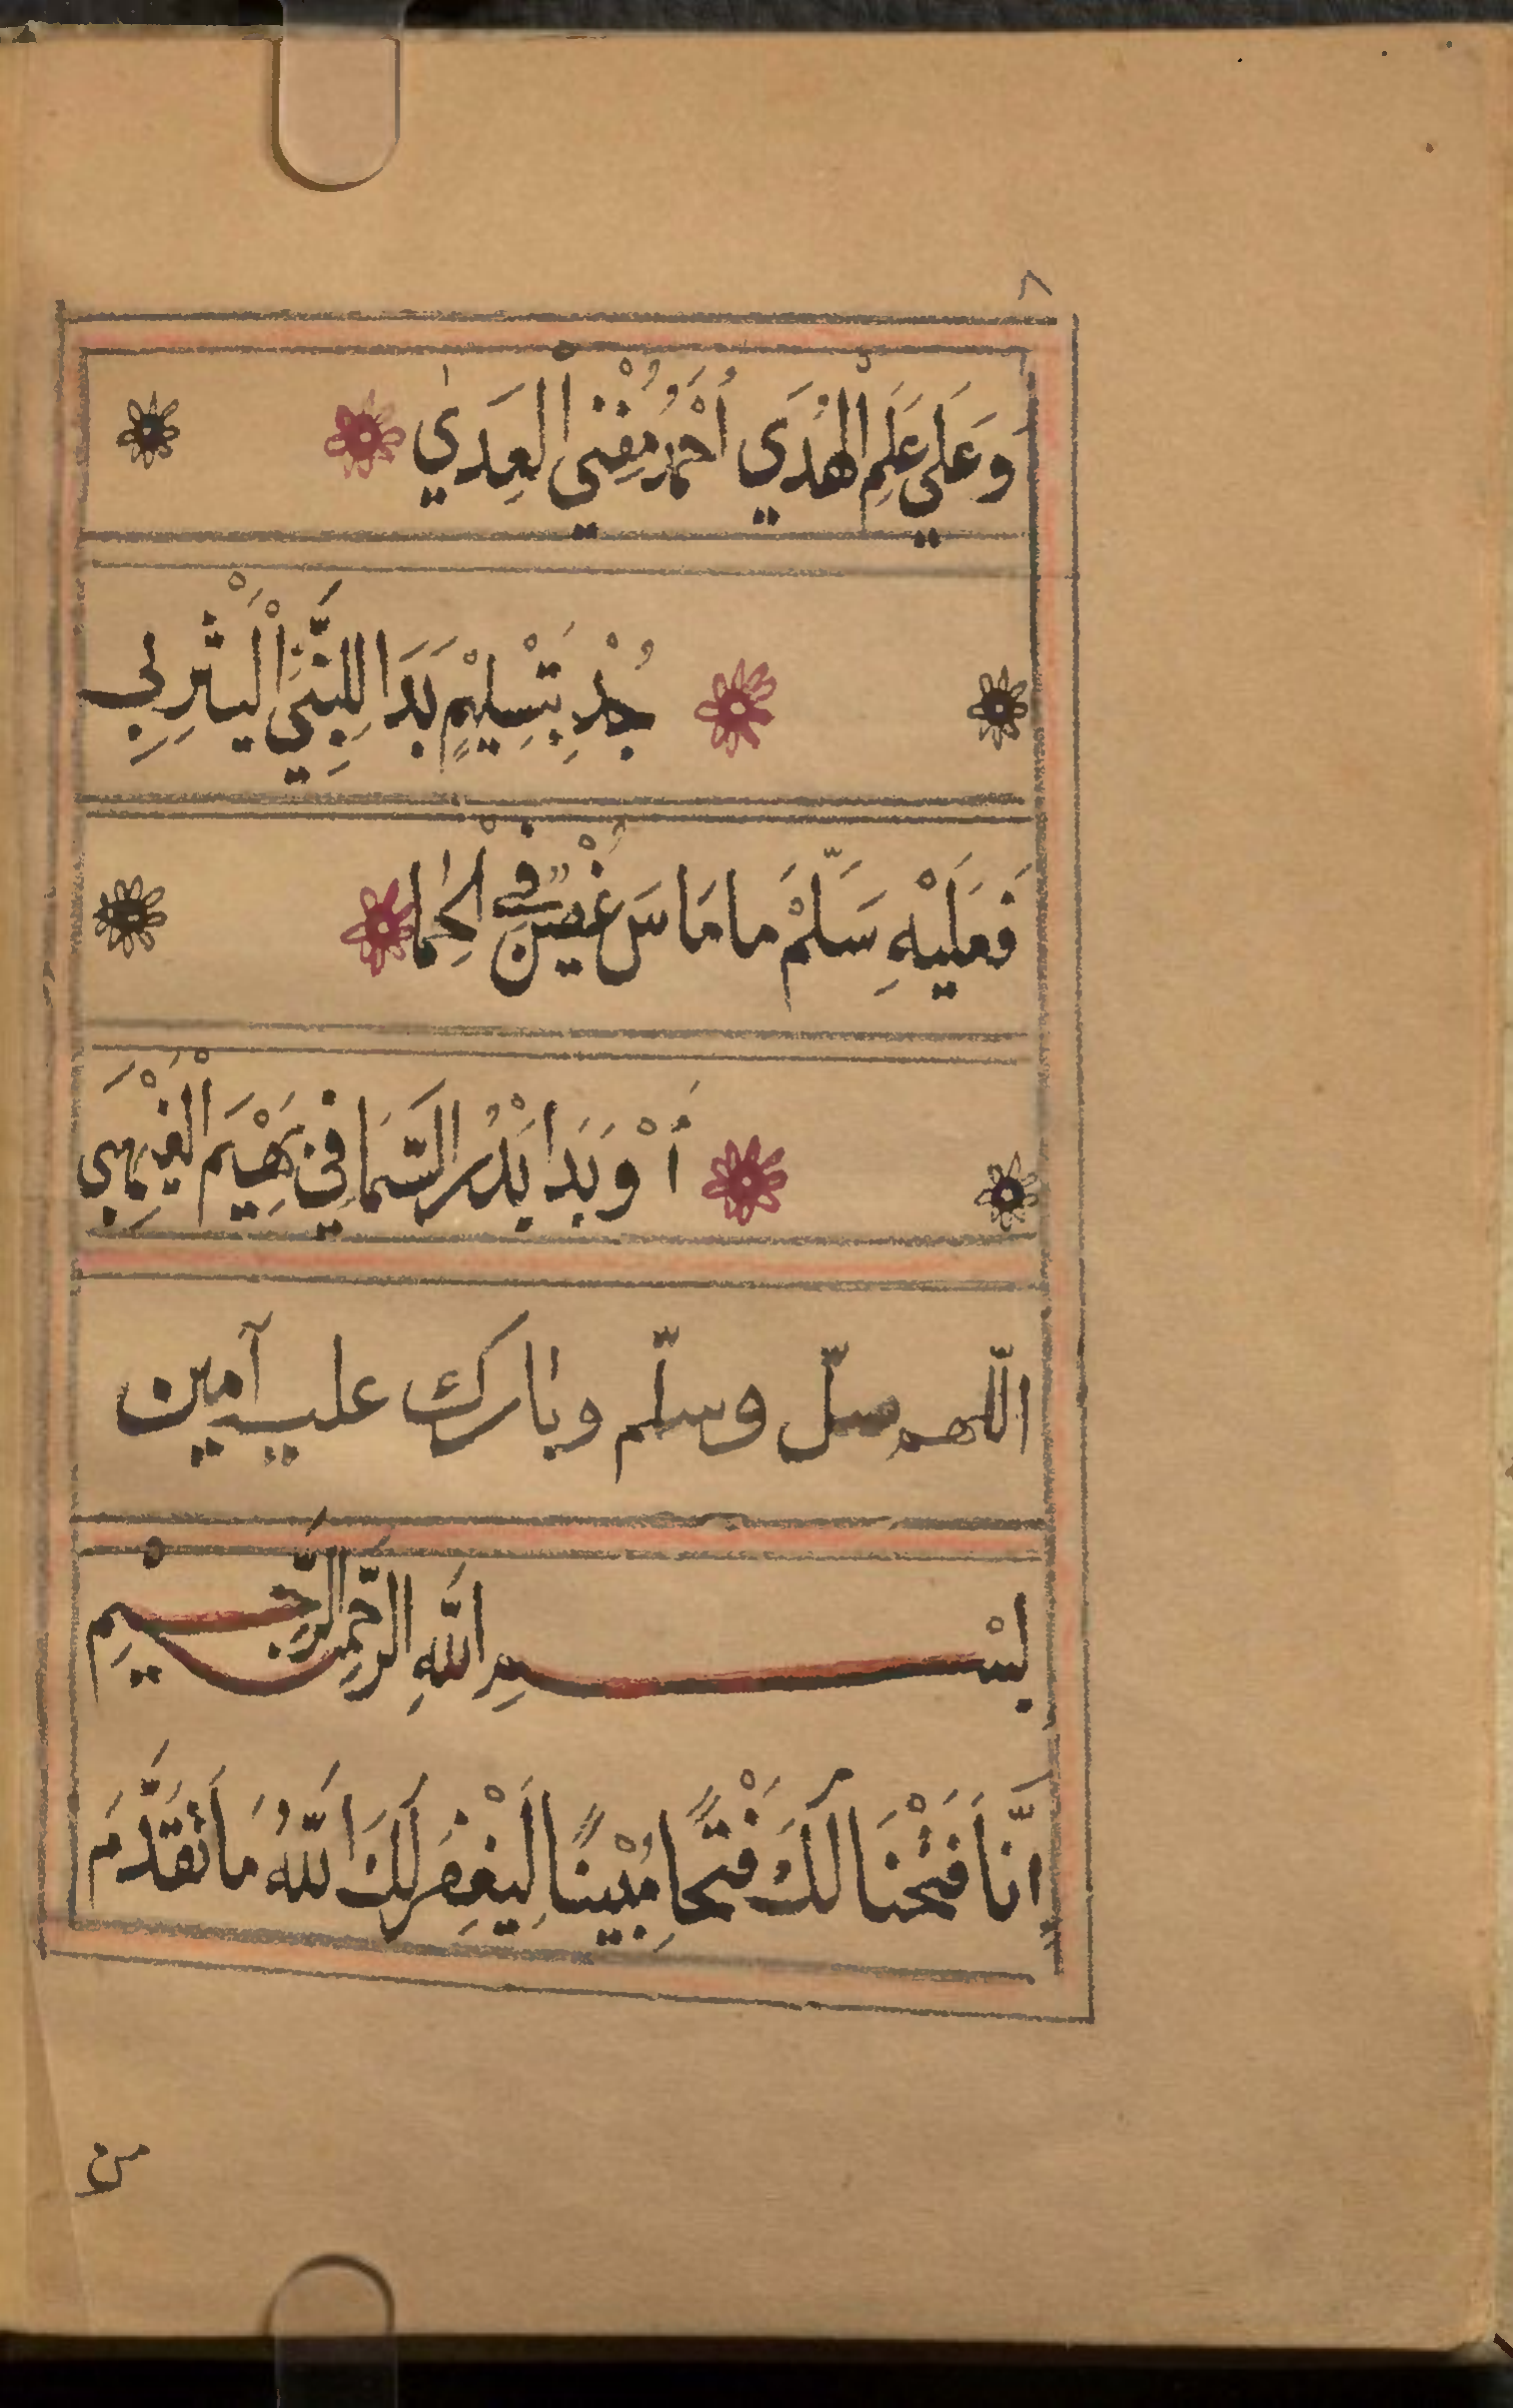 ٨
وَعَلَي عَلَمِ الْهُدَي أَحْمَدُ مُفْنِي الْعِدَيٰ
جُدْ بِتَسْلِيْمٍ بَدَا لِلنَّبِيِّ الْيَثْرِبِي
فَعَلَيْهِ سَلَّمْ مامَاسَ غُصْنٌ فِي الْحِمٰا
أَوْ بَدَا بَدْرُ السَّمَا فِي بَهْيَمِ الْغَيْهَبِي
اللّهم صلّ وسلّم وبارك عليه آمين
بِسْمِ اللَّهِ الرَّحْمٰنِ الرَّحِيْمِ
اِنَّا فَتَحْنَا لَكَ فَتْحًا مُبِيْنًا لِيَغْفِرَ لَكَ اللَّهُ مَا تَقَدَّمَ
من